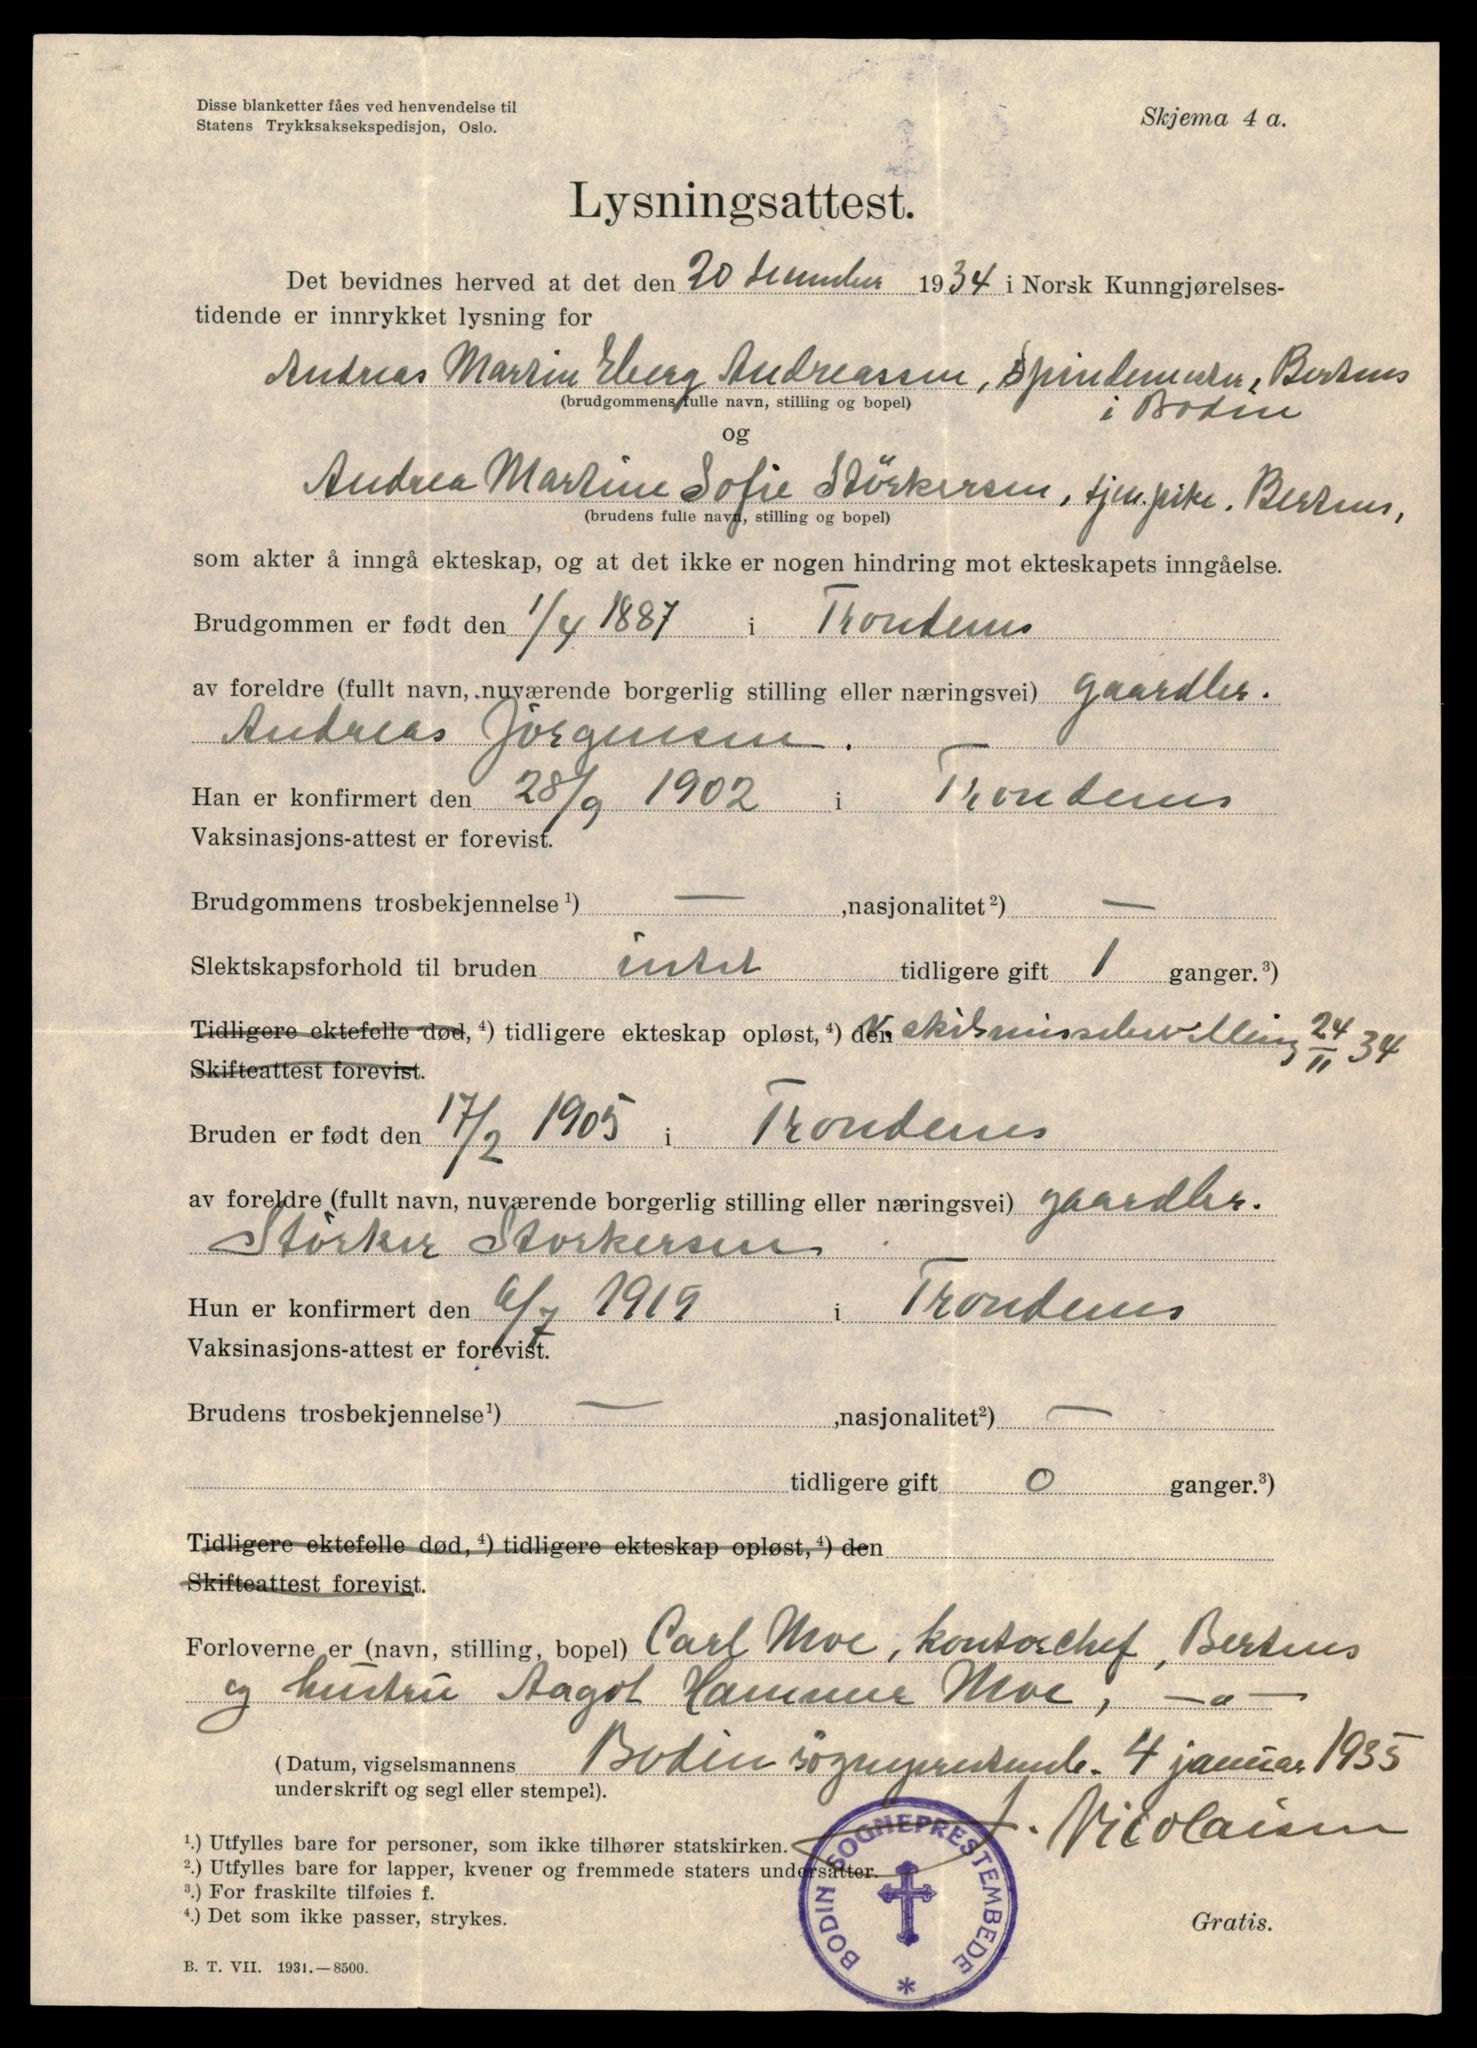 Disse blanketter fåes ved henvendelse til
Statens Trykksaksekspedisjon, Oslo.
Skjema 4 a.
Lysningsattest.
Det bevidnes herved at det den 20 desember 1934 i Norsk Kunngjørelses-
tidende er innrykket lysning for
Andreas Martin Eberg Andreassen, Spindemester, Bertnes
(brudgommens fulle navn, stilling og bopel)
i Bodin
og
Andrea Martine Sofie Störkersen, tjen.pike. Bertnes,
(brudens fulle navn, stilling og bopel)
som akter å inngå ekteskap, og at det ikke er nogen hindring mot ekteskapets inngåelse.
Brudgommen er født den 1/4 1887 i Trondenes
av foreldre (fullt navn, nuværende borgerlig stilling eller næringsvei) gaardbr.
Andreas Jörgensen.
Han er konfirmert den 28/9 1902 i Trondenes
Vaksinasjons-attest er forevist.
Brudgommens trosbekjennelse ¹) — ,nasjonalitet ²) —
Slektskapsforhold til bruden intet tidligere gift 1 ganger.³)
Tidligere ektefelle død, ⁴) tidligere ekteskap opløst, ⁴) den v. skilsmissebevilling 24/11 34
Skifteattest forevist.
Bruden er født den 17/2 1905 i Trondenes
av foreldre (fullt navn, nuværende borgerlig stilling eller næringsvei) gaardbr.
Störker Storkersen
Hun er konfirmert den 6/7 1919 i Trondenes
Vaksinasjons-attest er forevist.
Brudens trosbekjennelse¹) — ,nasjonalitet²) —
tidligere gift 0 ganger.³)
Tidligere ektefelle død, ⁴) tidligere ekteskap opløst, ⁴) den
Skifteattest forevist.
Forloverne er (navn, stilling, bopel) Carl Moe, kontorchef, Bertnes
og hustru Aagot Hammer Moe, —"—
(Datum, vigselsmannens Bodin sogneprestemb. 4 januar 1935
underskrift og segl eller stempel).
Nicolaisen
¹.) Utfylles bare for personer, som ikke tilhører statskirken.
².) Utfylles bare for lapper, kvener og fremmede staters undersåtter.
³.) For fraskilte tilføies f.
⁴.) Det som ikke passer, strykes.
BODIN SOGNEPRESTEMBEDE *
Gratis.
B. T. VII. 1931.—8500.